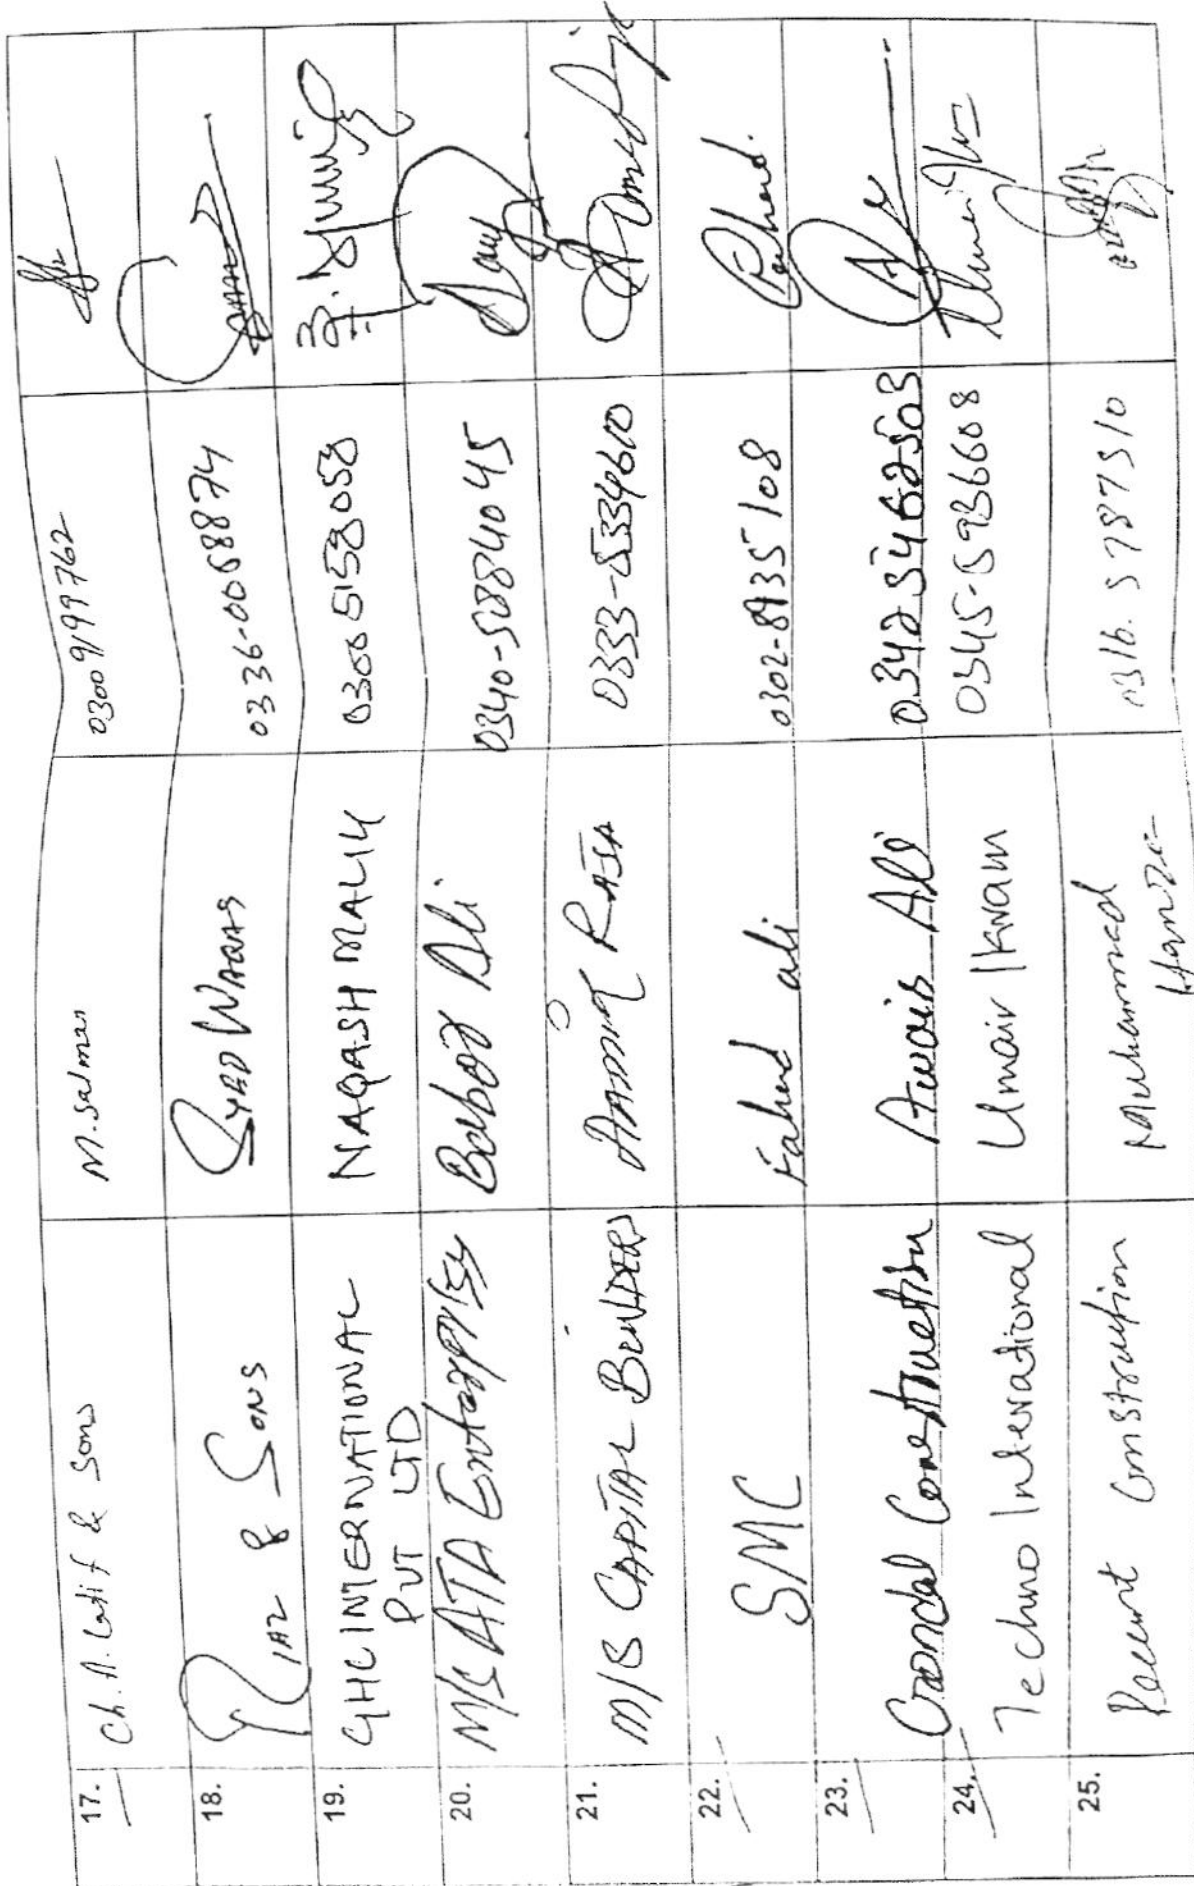 17. Ch. A. Latif & Sons M. Salman 03009199762
18. Riaz & Sons Syad Waqas 0336-0058874
19. GHC INTERNATIONAL NAQASH MALIK 03005158058
PVT LTD
20. M/S ATA Enterprises Babar Ali 0340-5884045
21. M/S CAPITAL BUILDERS Aamir RAJA 0333-5334610
22. SMC Fahad ali 0302-8935108 Fahad.
23. Gondal Construction Awais Ali 03425462503
24. Techno International Umair Ikram 0345-5936608
25. Construction Muhammad 0316.5787310
Hamza